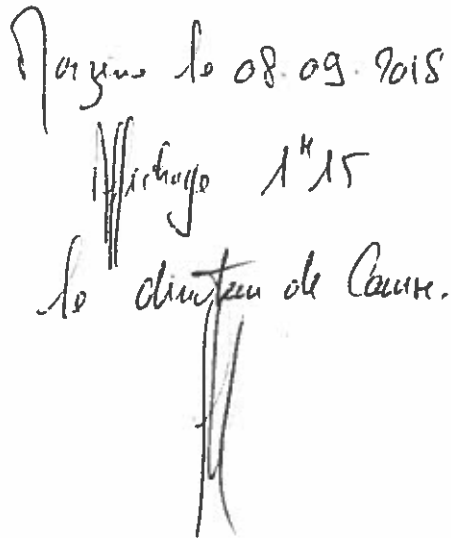 le 08.09.2018
Affichage 1H15
le directeur de Course.